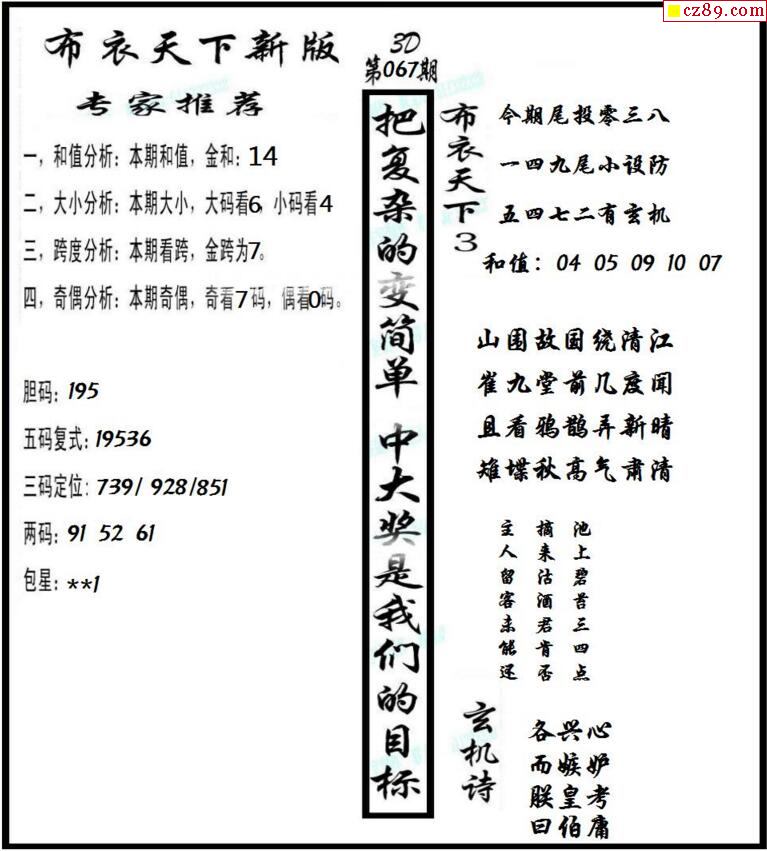 cz89.com
布衣天下新版
3D
第067期
专家推荐
一，和值分析：本期和值，金和：14
二，大小分析：本期大小，大码看6，小码看4
三，跨度分析：本期看跨，金跨为7。
四，奇偶分析：本期奇偶，奇看7码，偶看0码。
胆码：195
五码复式：19536
三码定位：739/ 928/851
两码：91 52 61
包星：**1
把复杂的变简单 中大奖是我们的目标
布衣天下3
今期尾投零三八
一四九尾小设防
五四七二有玄机
和值：04 05 09 10 07
山围故国绕清江
崔九堂前几度闻
且看鸦鹊弄新晴
雉堞秋高气肃清
池上碧苔三四点
摘来沽酒君肯否
主人留客来能还
玄机诗
各兴心
而嫉妒
朕皇考
曰伯庸